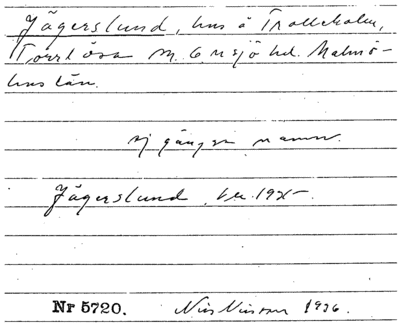 Jägerslund, hus å Trolleholm,
Torrlösa sn. Onsjö hd. Malmö-
hus län.
ej gånget namn.
Jägerslund
Nr 5720. Nils Nilsson 1936.